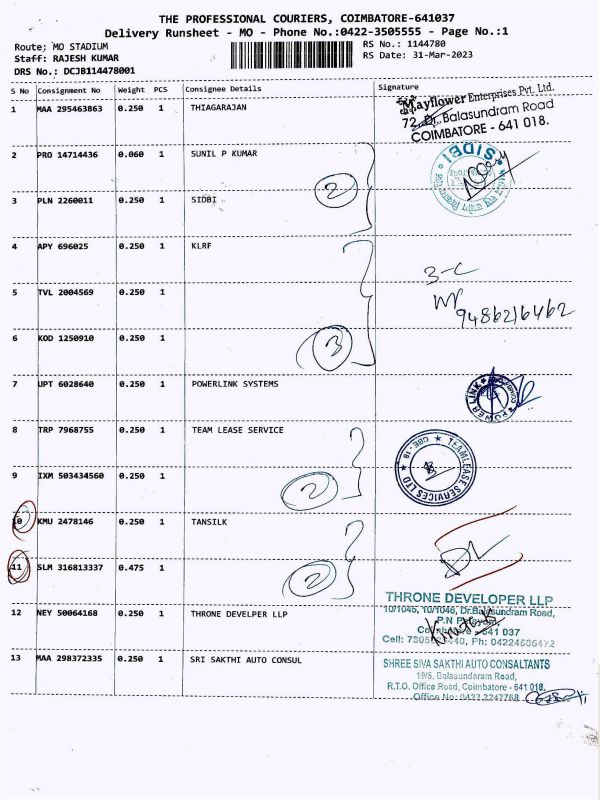 THE PROFESSIONAL COURIERS, COIMBATORE-641037
Delivery Runsheet - MO - Phone No.:0422-3505555 - Page No.:1
Route: MO STADIUM RS No.: 1144780
Staff: RAJESH KUMAR RS Date: 31-Mar-2023
DRS No.: DCJB114478001
S No Consignment No Weight PCS Consignee Details Signature
1 MAA 295463863 0.250 1 THIAGARAJAN
Mayflower Enterprises Pvt. Ltd.
72, Dr. Balasundram Road
COIMBATORE - 641 018.
2 PRO 14714436 0.060 1 SUNIL P KUMAR
SIDBI
2
3 PLN 2260011 0.250 1 SIDBI
4 APY 696025 0.250 1 KLRF
3-C
5 TVL 2004569 0.250 1
9486216462
6 KOD 1250910 0.250 1
3
7 UPT 6028640 0.250 1 POWERLINK SYSTEMS
POWERLINK
8 TRP 7968755 0.250 1 TEAM LEASE SERVICE
TEAMLEASE SERVICES LTD
CBE - 18
9 IXM 503434560 0.250 1
2
10 KMU 2478146 0.250 1 TANSILK
11 SLM 316813337 0.475 1
2
THRONE DEVELOPER LLP
10/1045, 10/1046, Dr.Balasundram Road,
12 NEY 50064168 0.250 1 THRONE DEVELPER LLP
P.N
641 037
Cell: Ph: 04224506472
13 MAA 298372335 0.250 1 SRI SAKTHI AUTO CONSUL
SHREE SIVA SAKTHI AUTO CONSALTANTS
19/5, Balasundaram Road,
R.T.O. Office Road, Coimbatore - 641 018.
Office No: 0422 2247768